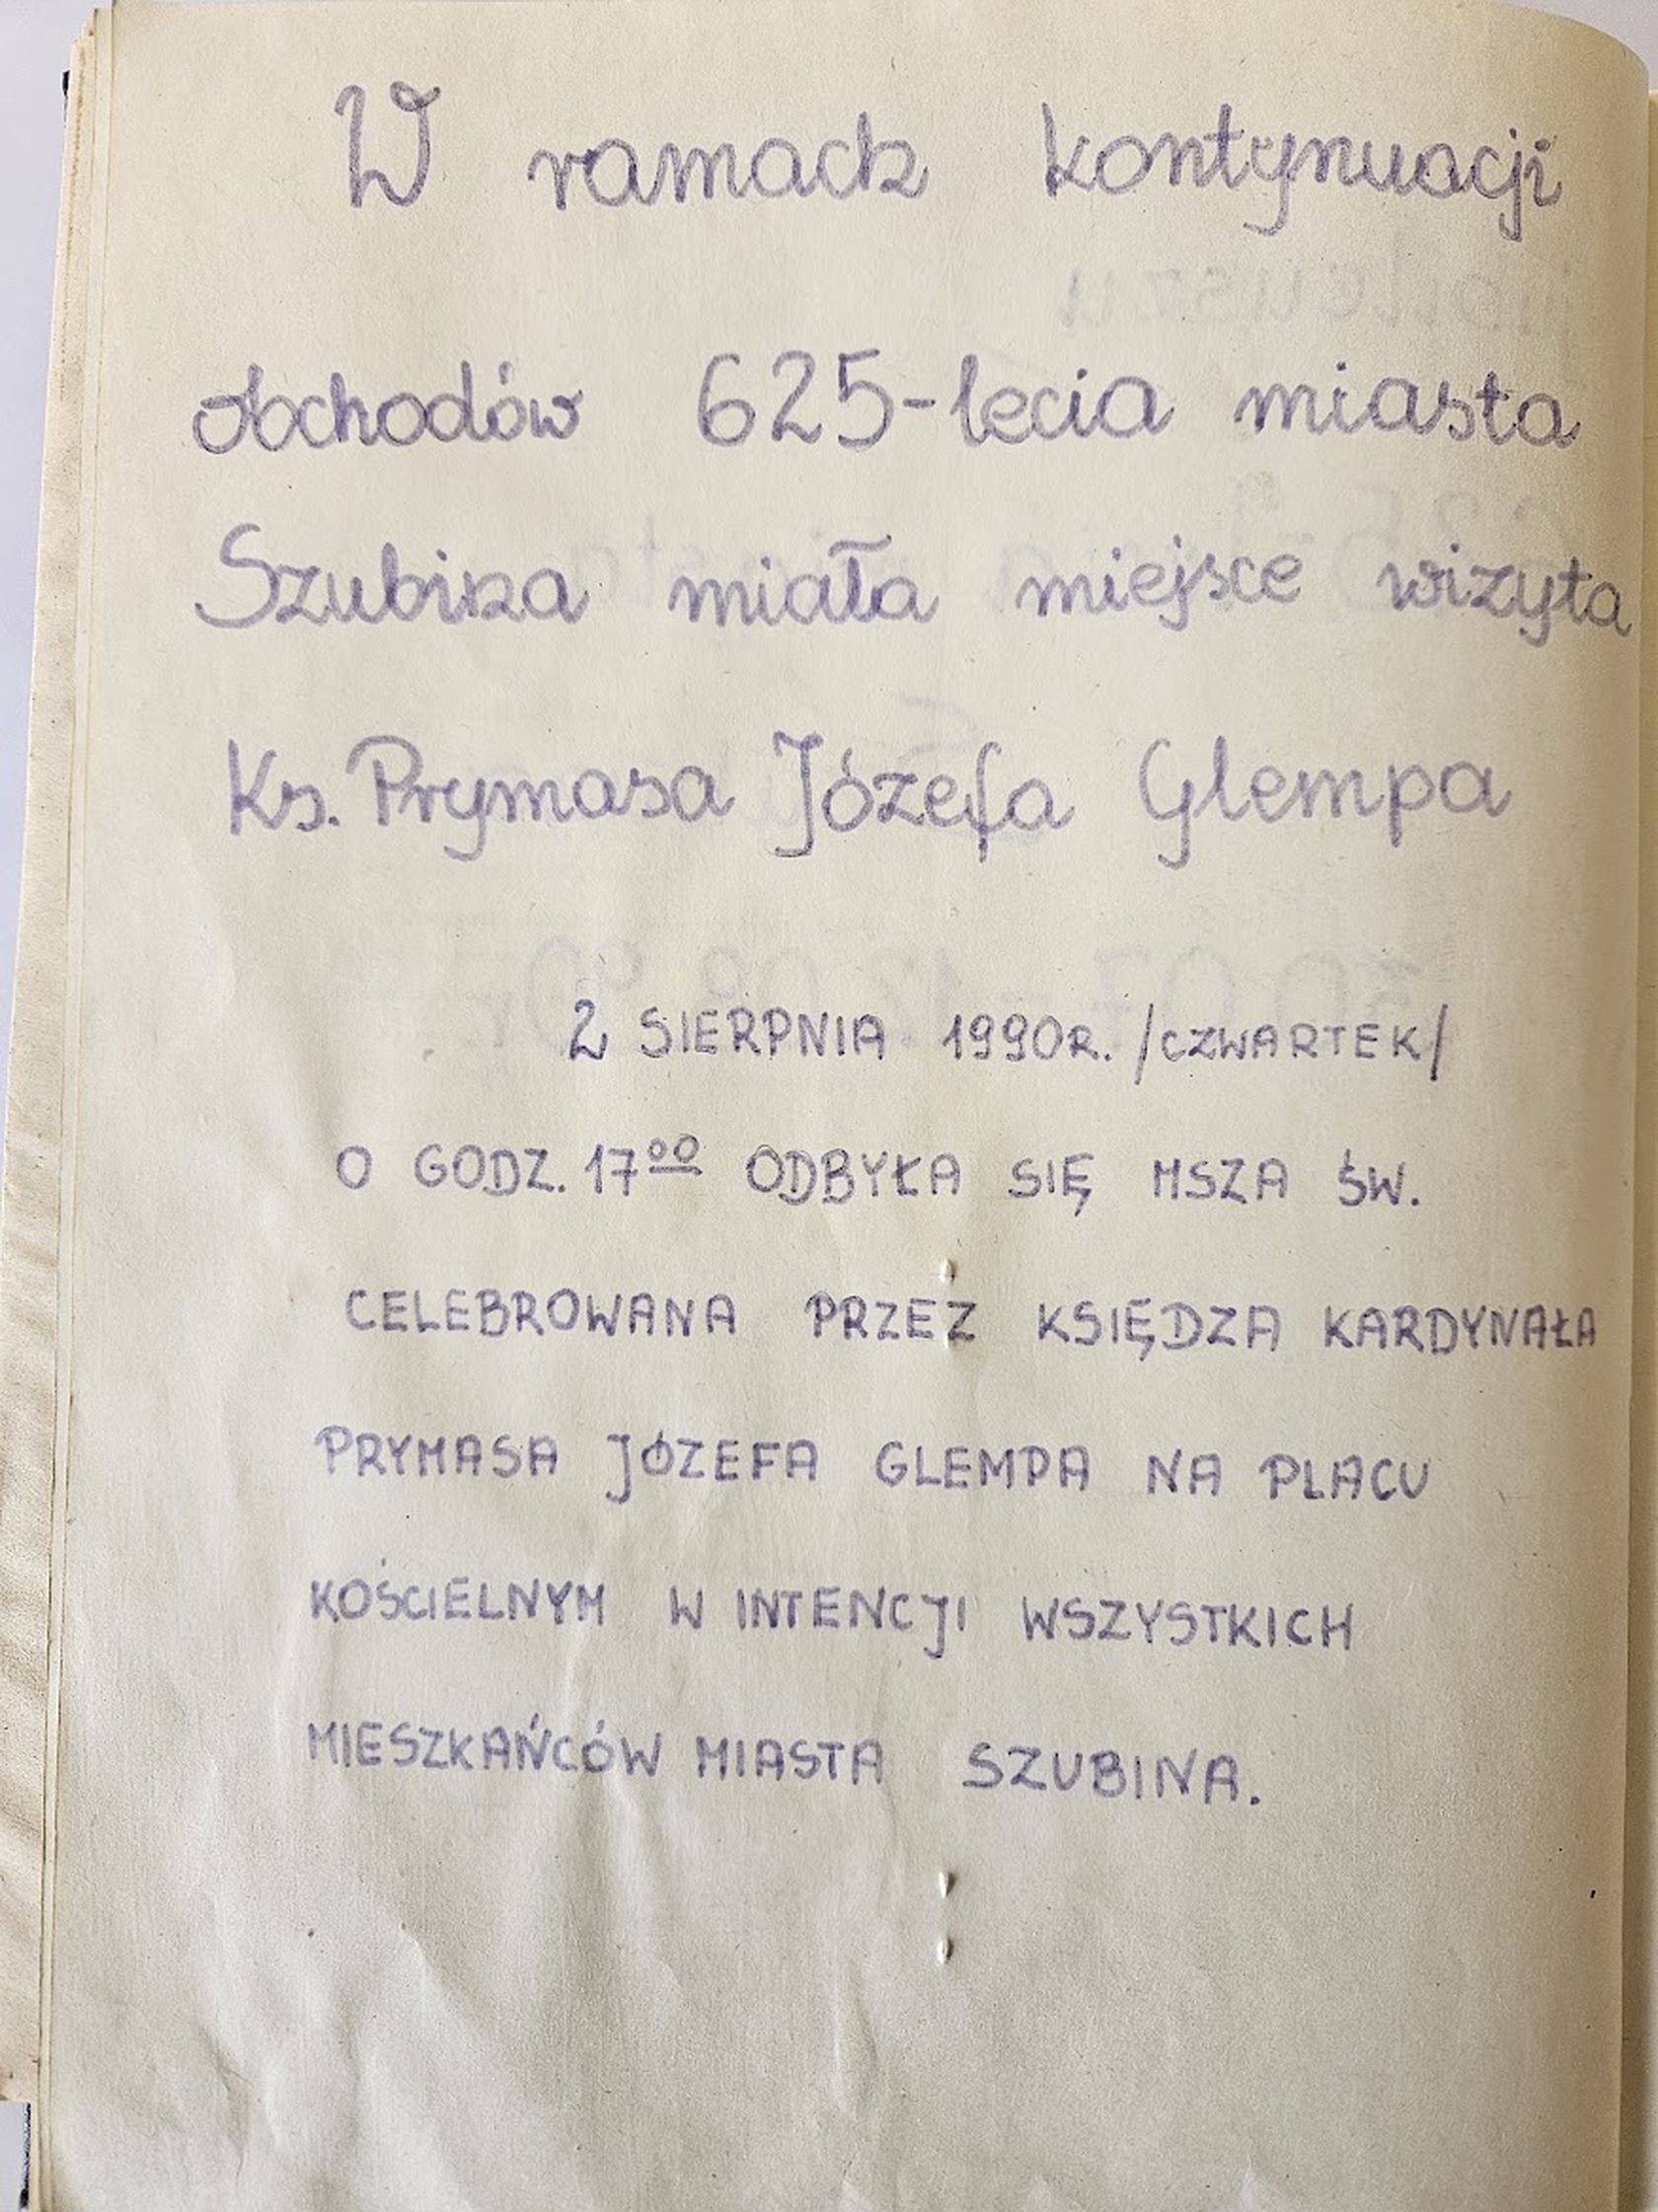 W ramach kontynuacji
obchodów 625-lecia miasta
Szubina miała miejsce wizyta
Ks. Prymasa Józefa Glempa
2 SIERPNIA 1990R. /CZWARTEK/
O GODZ. 17⁰⁰ ODBYŁA SIĘ MSZA ŚW.
CELEBROWANA PRZEZ KSIĘDZA KARDYNAŁA
PRYMASA JÓZEFA GLEMPA NA PLACU
KOŚCIELNYM W INTENCJI WSZYSTKICH
MIESZKAŃCÓW MIASTA SZUBINA.